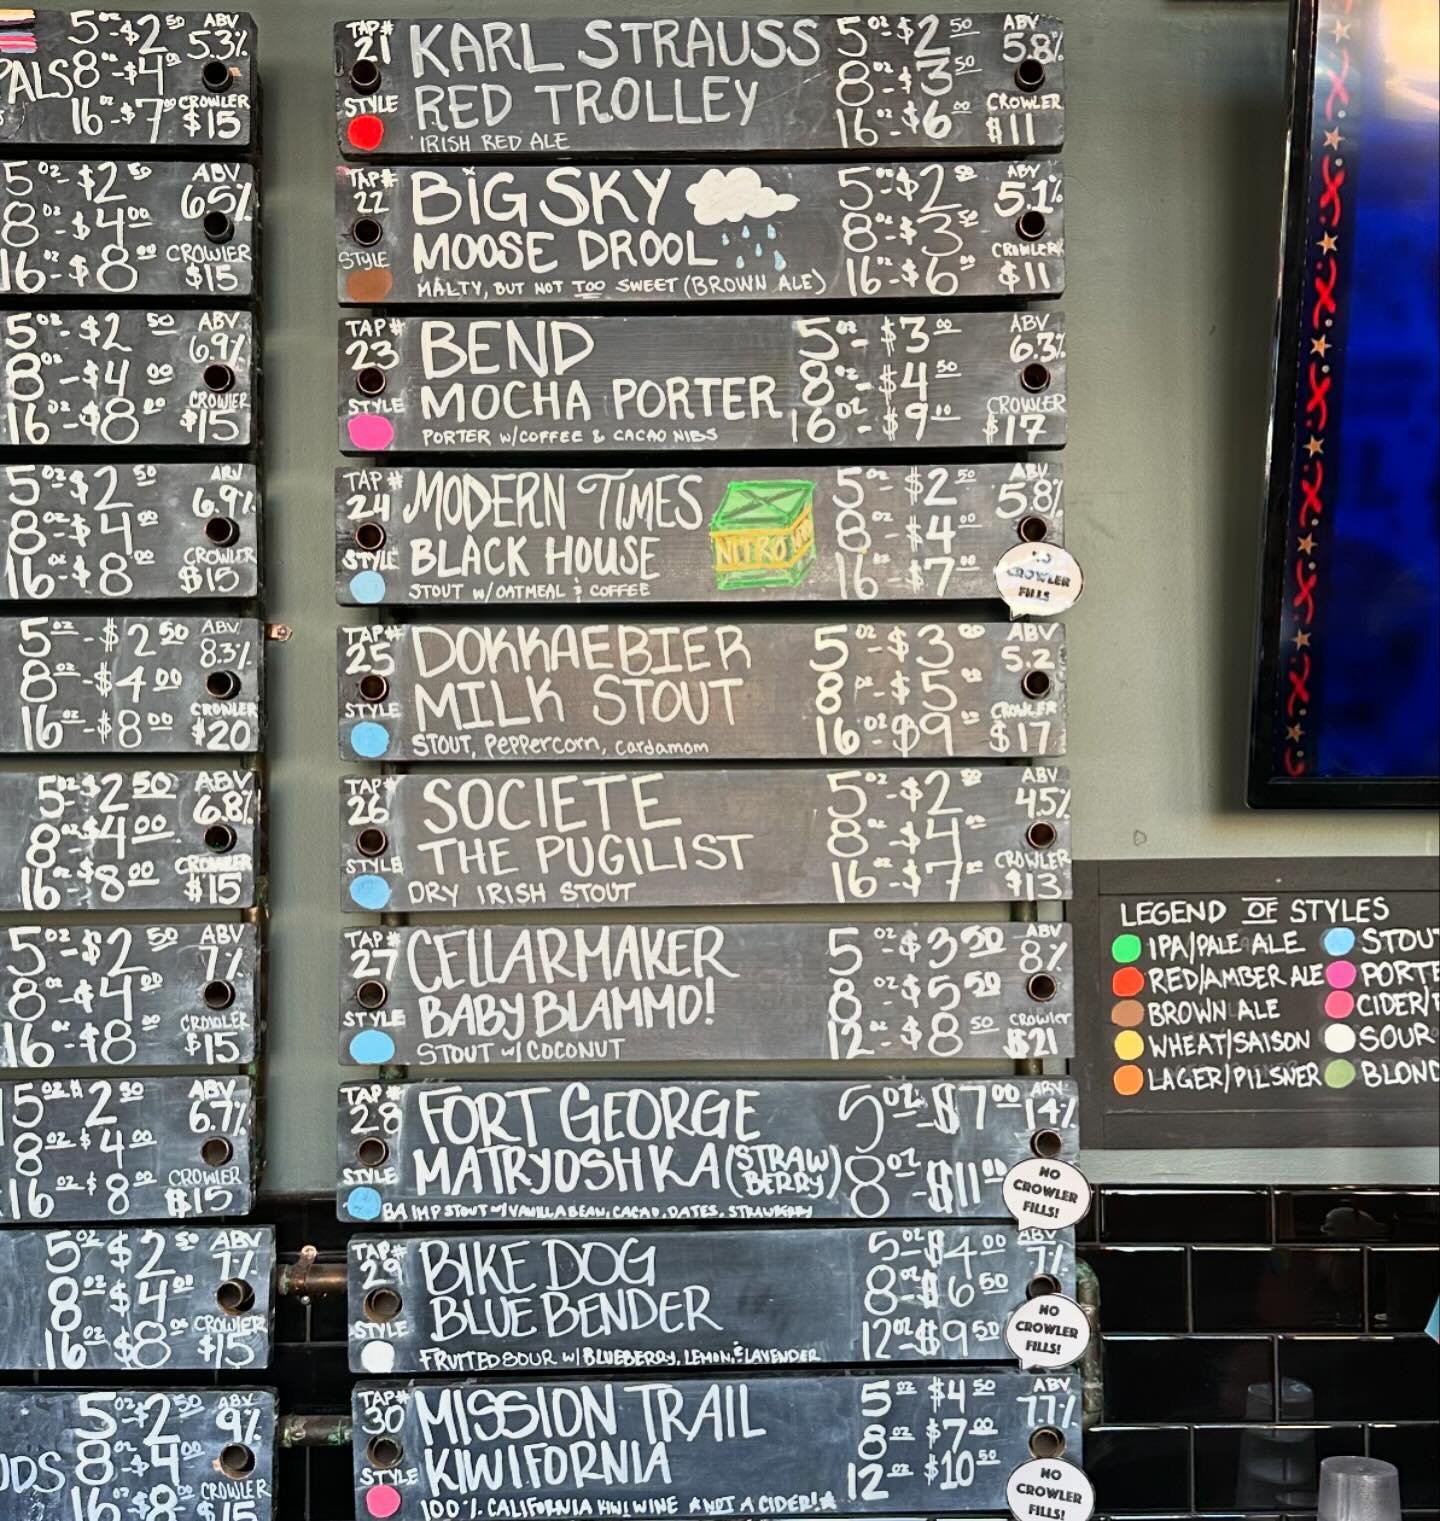 5oz-$2 50 ABV
5.3%
PALS 8oz-$4 00
16oz-$7 00 CROWLER
$15
5oz-$2 50 ABV
6.5%
8oz-$4 00
16oz-$8 00 CROWLER
$15
5oz-$2 50 ABV
6.9%
8oz-$4 00
16oz-$8 00 CROWLER
$15
5oz-$2 50 ABV
6.9%
8oz-$4 00
16oz-$8 00 CROWLER
$15
5oz-$2 50 ABV
8.3%
8oz-$4 00
16oz-$8 00 CROWLER
$20
5oz-$2 50 ABV
6.8%
8oz-$4 00
16oz-$8 00 CROWLER
$15
5oz-$2 50 ABV
7%
8oz-$4 00
16oz-$8 00 CROWLER
$15
5oz $2 50 ABV
6.7%
8oz $4 00
16oz $8 00 CROWLER
$15
5oz $2 50 ABV
7%
8oz $4 00
16oz $8 00 CROWLER
$15
5oz-$2 50 ABV
9%
ODS 8oz-$4 00
16oz-$8 00 CROWLER
$15
TAP# 21
KARL STRAUSS
RED TROLLEY
IRISH RED ALE
STYLE
5oz-$2 50
8oz-$3 50
16oz-$6 00
ABV 5.8%
CROWLER $11
TAP# 22
BIG SKY
MOOSE DROOL
MALTY, BUT NOT TOO SWEET (BROWN ALE)
STYLE
5oz-$2 50
8oz-$3 50
16oz-$6 00
ABV 5.1%
CROWLER $11
TAP# 23
BEND
MOCHA PORTER
PORTER W/COFFEE & CACAO NIBS
STYLE
5oz-$3 00
8oz-$4 50
16oz-$9 00
ABV 6.3%
CROWLER $17
TAP# 24
MODERN TIMES
BLACK HOUSE
STOUT W/OATMEAL & COFFEE
NITRO
STYLE
5oz-$2 50
8oz-$4 00
16oz-$7 00
ABV 5.8%
NO
CROWLER
FILLS
TAP# 25
DOKKAEBIER
MILK STOUT
STOUT, PEPPERCORN, CARDAMOM
STYLE
5oz-$3 00
8oz-$5 00
16oz-$9 00
ABV 5.2
CROWLER $17
TAP# 26
SOCIETE
THE PUGILIST
DRY IRISH STOUT
STYLE
5oz-$2 50
8oz-$4 00
16oz-$7 00
ABV 4.5%
CROWLER $13
TAP# 27
CELLARMAKER
BABY BLAMMO!
STOUT W/COCONUT
STYLE
5oz-$3 50
8oz-$5 50
12oz-$8 50
ABV 8%
CROWLER $21
TAP# 28
FORT GEORGE
MATRYOSHKA (STRAWBERRY)
BA IMP STOUT W/VANILLA BEAN, CACAO, DATES, STRAWBERRY
STYLE
5oz-$7 00
8oz-$11 00
ABV 14%
NO
CROWLER
FILLS!
TAP# 29
BIKE DOG
BLUE BENDER
FRUITED SOUR W/BLUEBERRY, LEMON, & LAVENDER
STYLE
5oz-$4 00
8oz-$6 50
12oz-$9 50
ABV 7%
NO
CROWLER
FILLS!
TAP# 30
MISSION TRAIL
KIWIFORNIA
100% CALIFORNIA KIWI WINE *NOT A CIDER!*
STYLE
5oz $4 50
8oz $7 00
12oz $10 50
ABV 7.7%
NO
CROWLER
FILLS!
LEGEND OF STYLES
IPA/PALE ALE STOU
RED/AMBER ALE PORTE
BROWN ALE CIDER/
WHEAT/SAISON SOUR
LAGER/PILSNER BLOND